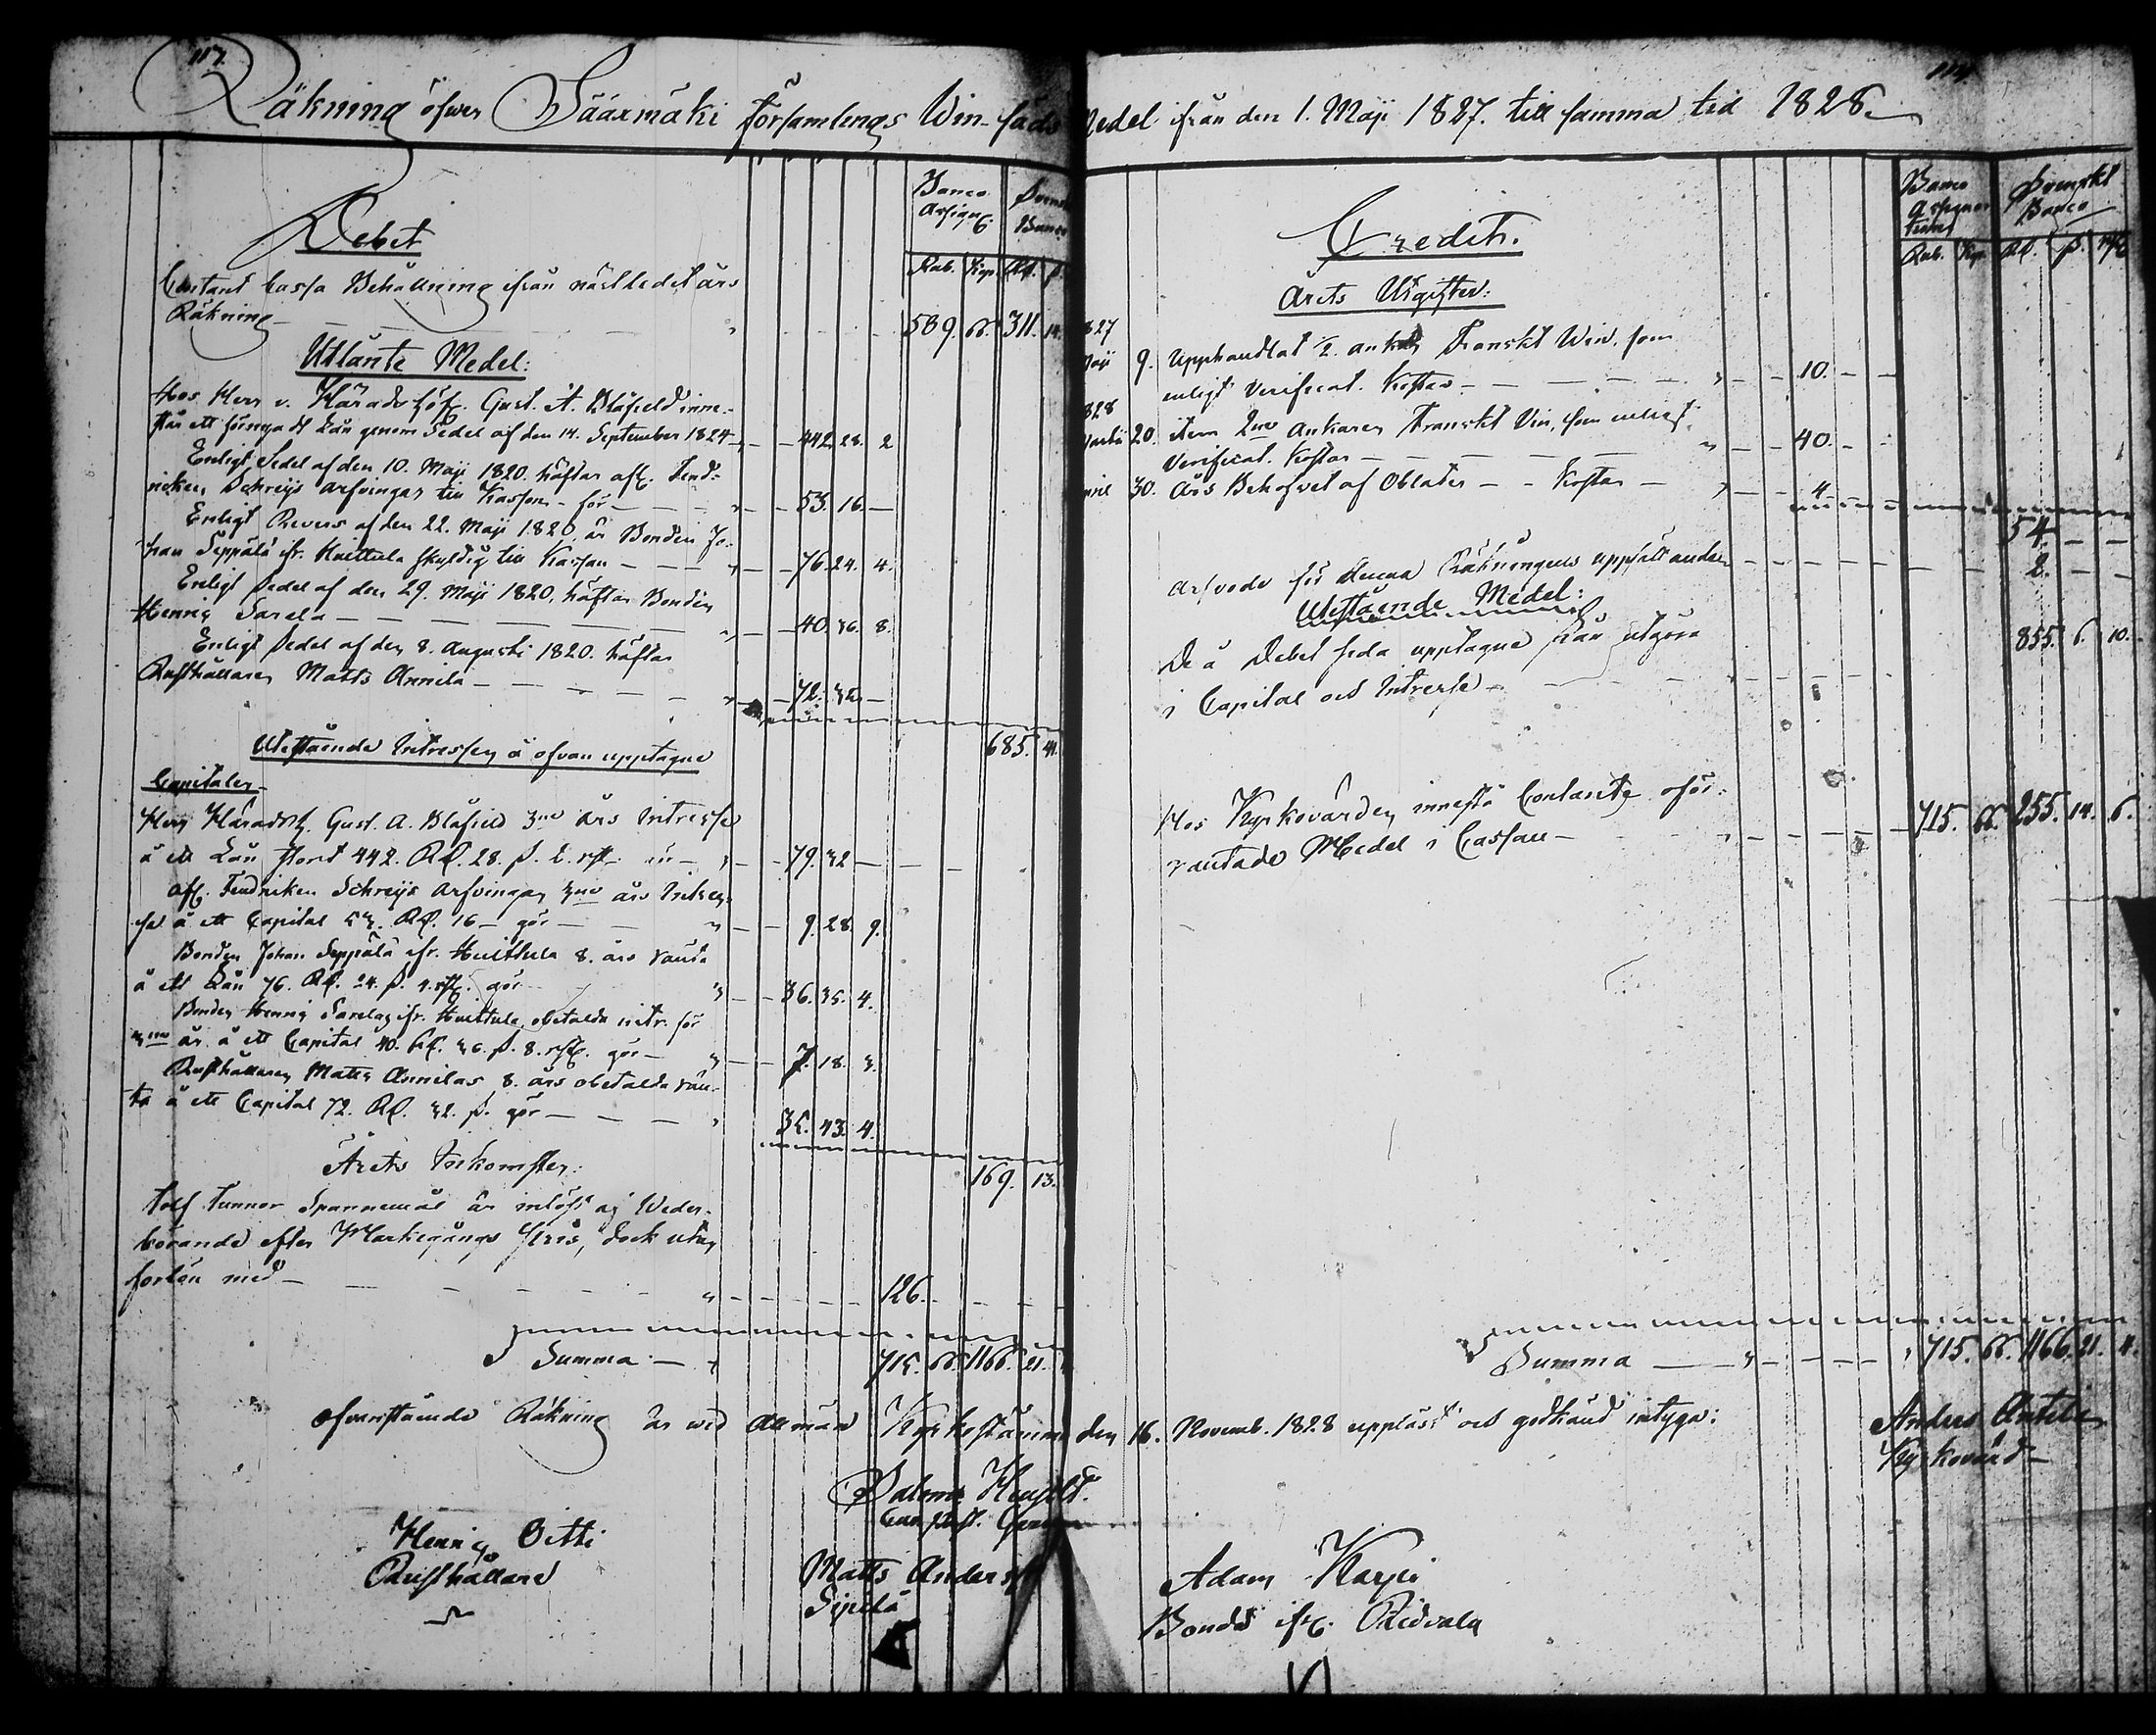 117.
Räkning öfver Säärmäki församlings Win-säds Medel ifrån den 1. Maji 1827. till samma tid 1828.
Debet
Banco Assign. Svenskt Banco
Rub. Kop. RD. ß.
Contant Cassa Behållning ifrån näst ledet års
Räkning 589. 66. 311. 14.
Utlånte Medel:
Hos Herr v. Häradshöf. Gust. A. Blåfield inne-
står ett förnyadt Lån genom Sedel af den 14. September 1824 442. 28. 2
Enligt Sedel af den 10. Maji 1820. häftar afl. Fend-
ricken Schreijs arfvingar till Kassan för 53. 16.
Enligt Revers af den 22. Maji 1820, är Bonden Jo-
han Seppälä ifr. Huittula skyldig till Kassan 76. 24. 4.
Enligt Sedel af den 29. Maji 1820, häftar Bonden
Henric Sarela 40. 36. 8.
Enligt Sedel af den 8. Augusti 1820. häftar
Rusthållaren Matts Annila 72. 32.
685. 41.
Utestående Intressen å ofvan upptagne
Capitaler
Herr Häradsh. Gust. A. Blåfield 3ne års Intresse
å ett Lån stort 442. RD. 28. ß. 2. rst. 79. 32
afl. Fendricken Schreijs Arfvingar 3ne års Intres-
se å ett Capital 53. RD. 16 gör 9. 28. 9.
Bonden Johan Seppälä ifr. Huittula 8. års ränta
å ett Lån 76. RD. 24. ß. 4. rst. gör 36. 35. 4.
Bonden Henric Sarelas ifr. Huittula obetalda intr. för
3ne år å ett Capital 40. RD. 36. ß. 8. rst. gör 7. 18. 3.
Rusthållaren Matts Annilas 8. års obetalda rän-
ta å ett Capital 72. RD. 32. ß. gör 35. 43. 4.
169. 13.
Årets Inkomster:
Tolf Tunnor Spannemål är inlöst af Weder-
börande efter Markegångs Pris, dock utan
forlön med 126.
Summa 715. 66. 1166. 21.
Credit.
Banco Assignationer Svenskt Banco
Rub. Kop. RD. ß. rst
Årets Utgifter:
827
Maji 9. Upphandlat 1/2. ankar Franskt Win, som
enligt Verificat. Kostar 10.
828
Martii 20. item 2ne Ankaren Franskt Vin, som enligt
Verificat. Kostar 40.
30. Års Behofvet af Oblater Kostar 4
54.
Arfvode för denna Räkningens uppsättande 2.
Utestående Medel:
De å Debet sida upptagne Lån utgöra
i Capital och Intresse 855. 6. 10.
Hos Kyrkovärden innestå Contante oför-
räntade Medel i Cassan 715. 66. 255. 14. 6.
Summa 715. 66. 1166. 21. 4.
Ofvanstående Räkning är wid Allmän Kyrkostämma den 16. Novemb. 1828 uppläst och godkänd intyga:
Anders Antila
Kyrkovärd
Henric Oitti
Rusthållare
Matts Anderss
Sipilä
Adam Karpi
Bonde ifr. Ridvala